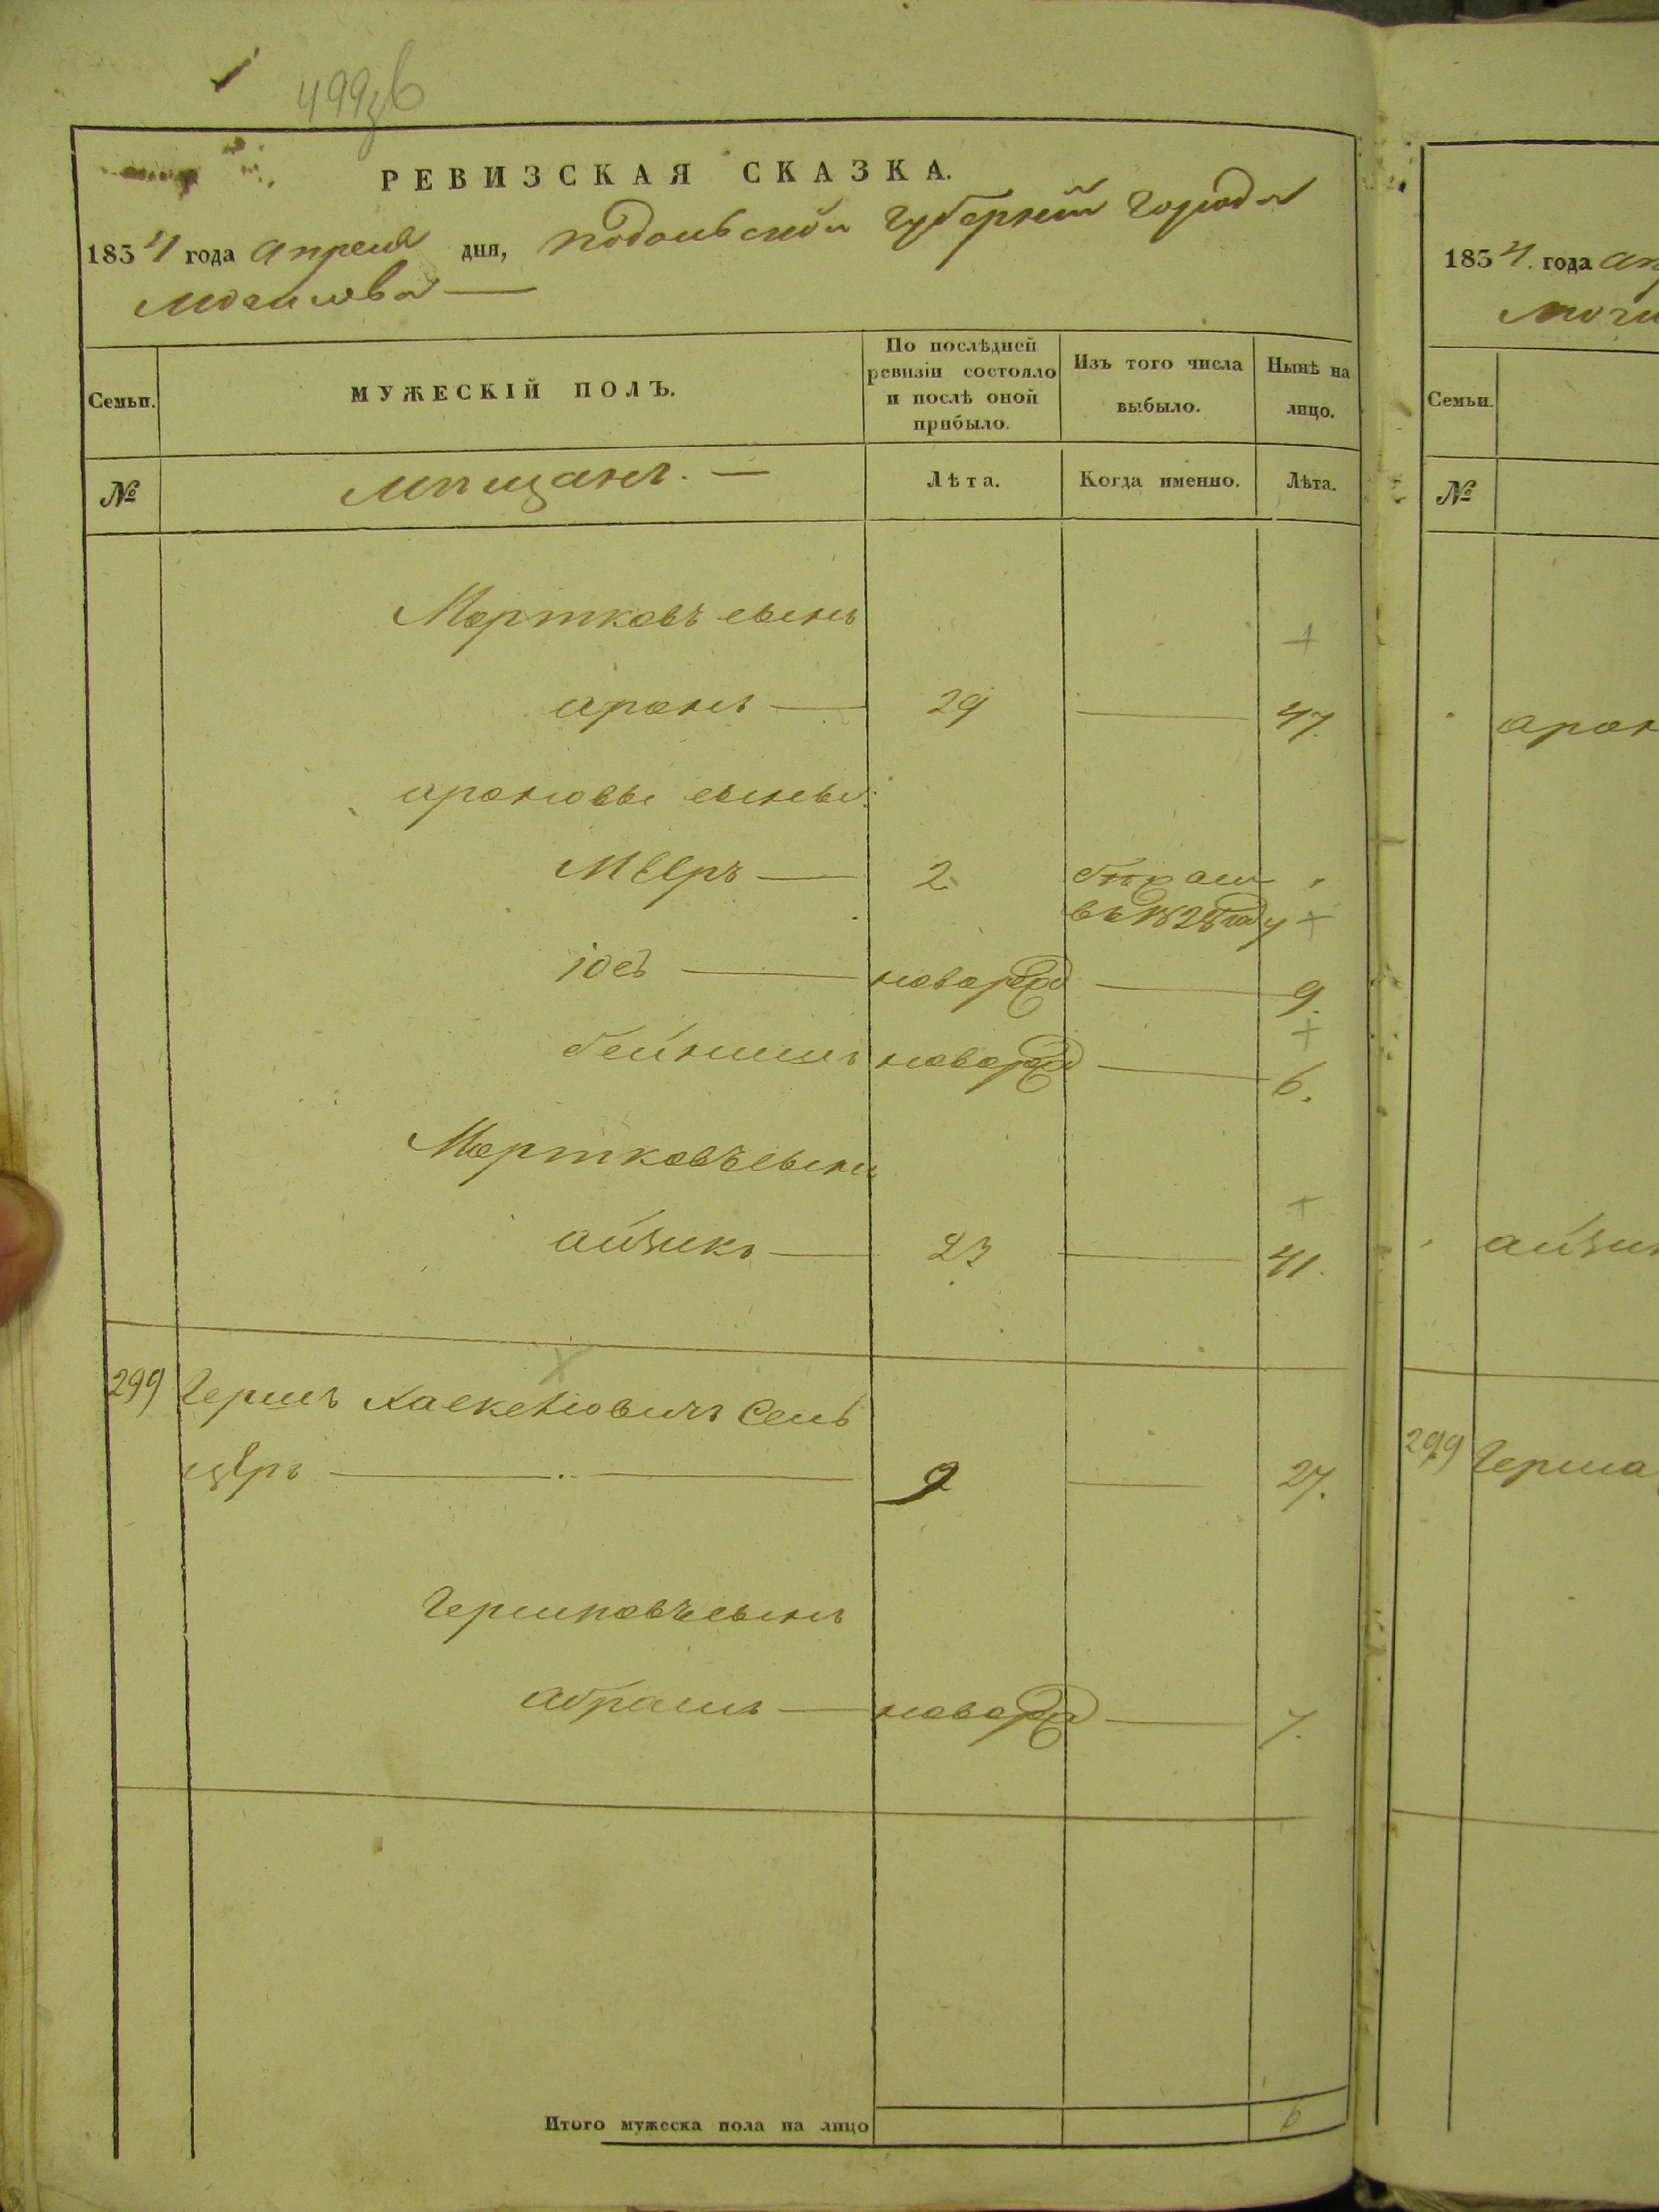 499зв
РЕВИЗСКАЯ СКАЗКА.
1834 года апреля дня, Подольской губернии города
Могилева —
Семьи.
МУЖЕСКІЙ ПОЛЪ.
По послѣдней ревизіи состояло и послѣ оной прибыло.
Изъ того числа выбыло.
Нынѣ на лицо.
№
мѣщанъ. —
Лѣта.
Когда именно.
Лѣта.
Мортковъ сынъ
аронъ — 29 — 47.
ароновы сыны:
Мееръ — 2
въ 1828 году
іос — новород — 9.
бейнишъ новород — 6.
Мортковъ сынъ
айзикъ — 23 — 41.
299 Гершъ Хаскелювичъ Сень
церъ — 9 — 27.
Гершковъ сынъ
абрамъ — новорд — 7.
Итого мужеска пола на лицо 6
1834. года ап
Моги
Семьи.
№
арон
айзи
299 Герша